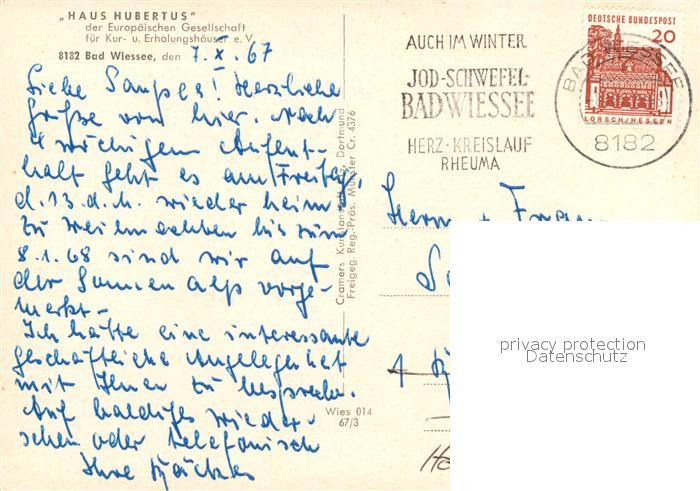 „HAUS HUBERTUS"
der Europäischen Gesellschaft
für Kur- u. Erholungshäuser e. V.
8182 Bad Wiessee, den 7. X. 67
Liebe
Herzliche
Grüße von hier. Nach
4 wöchigem Aufent-
halt geht es am Freitag,
d. 13. d. M. wieder heim.
Zu Weihnachten bis zum
8.1.68 sind wir auf
der Sonnenalp vorge-
merkt.-
Ich hätte eine interessante
geschäftliche Angelegenheit
mit Ihnen zu besprechen.
Auf baldiges Wieder-
sehen oder telefonisch
Ihre
Cramers Kunstanstalt KG, Dortmund
Freigeg. Reg.-Präs. Münster Cr. 4376
Wies 014
67/3
AUCH IM WINTER
JOD-SCHWEFEL-
BAD WIESSEE
HERZ·KREISLAUF
RHEUMA
DEUTSCHE BUNDESPOST
20
LORSCH/HESSEN
BAD WIESSEE
8182
Herrn + Frau
privacy protection
Datenschutz